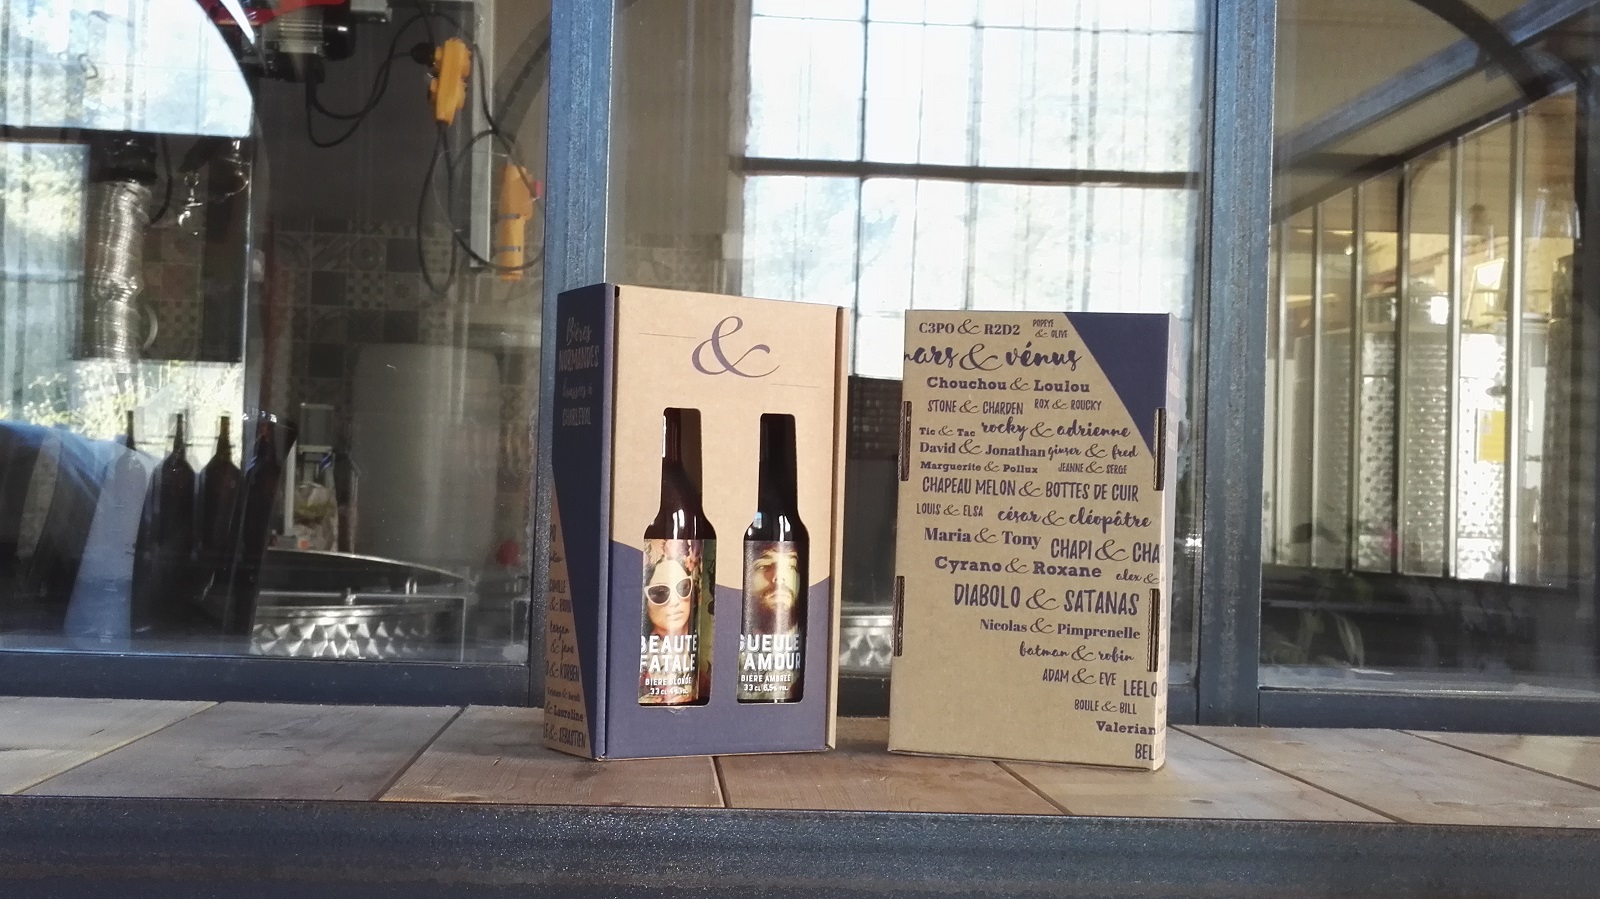 Bières
NORMANDES
brassées à
CHARLEVAL
&
BEAUTE
FATALE
BIÈRE BLONDE
33 CL
GUEULE
D'AMOUR
BIÈRE AMBRÉE
33 CL 6,5% VOL.
& Laureline
& SÉBASTIEN
C3PO & R2D2
POPEYE & OLIVE
mars & vénus
Chouchou & Loulou
STONE & CHARDEN ROX & ROUCKY
Tic & Tac rocky & adrienne
David & Jonathan ginger & fred
Marguerite & Pollux JEANNE & SERGE
CHAPEAU MELON & BOTTES DE CUIR
LOUIS & ELSA césar & cléopâtre
Maria & Tony CHAPI & CHA
Cyrano & Roxane alex &
DIABOLO & SATANAS
Nicolas & Pimprenelle
batman & robin
ADAM & EVE LEELO
BOULE & BILL
Valerian
BEL